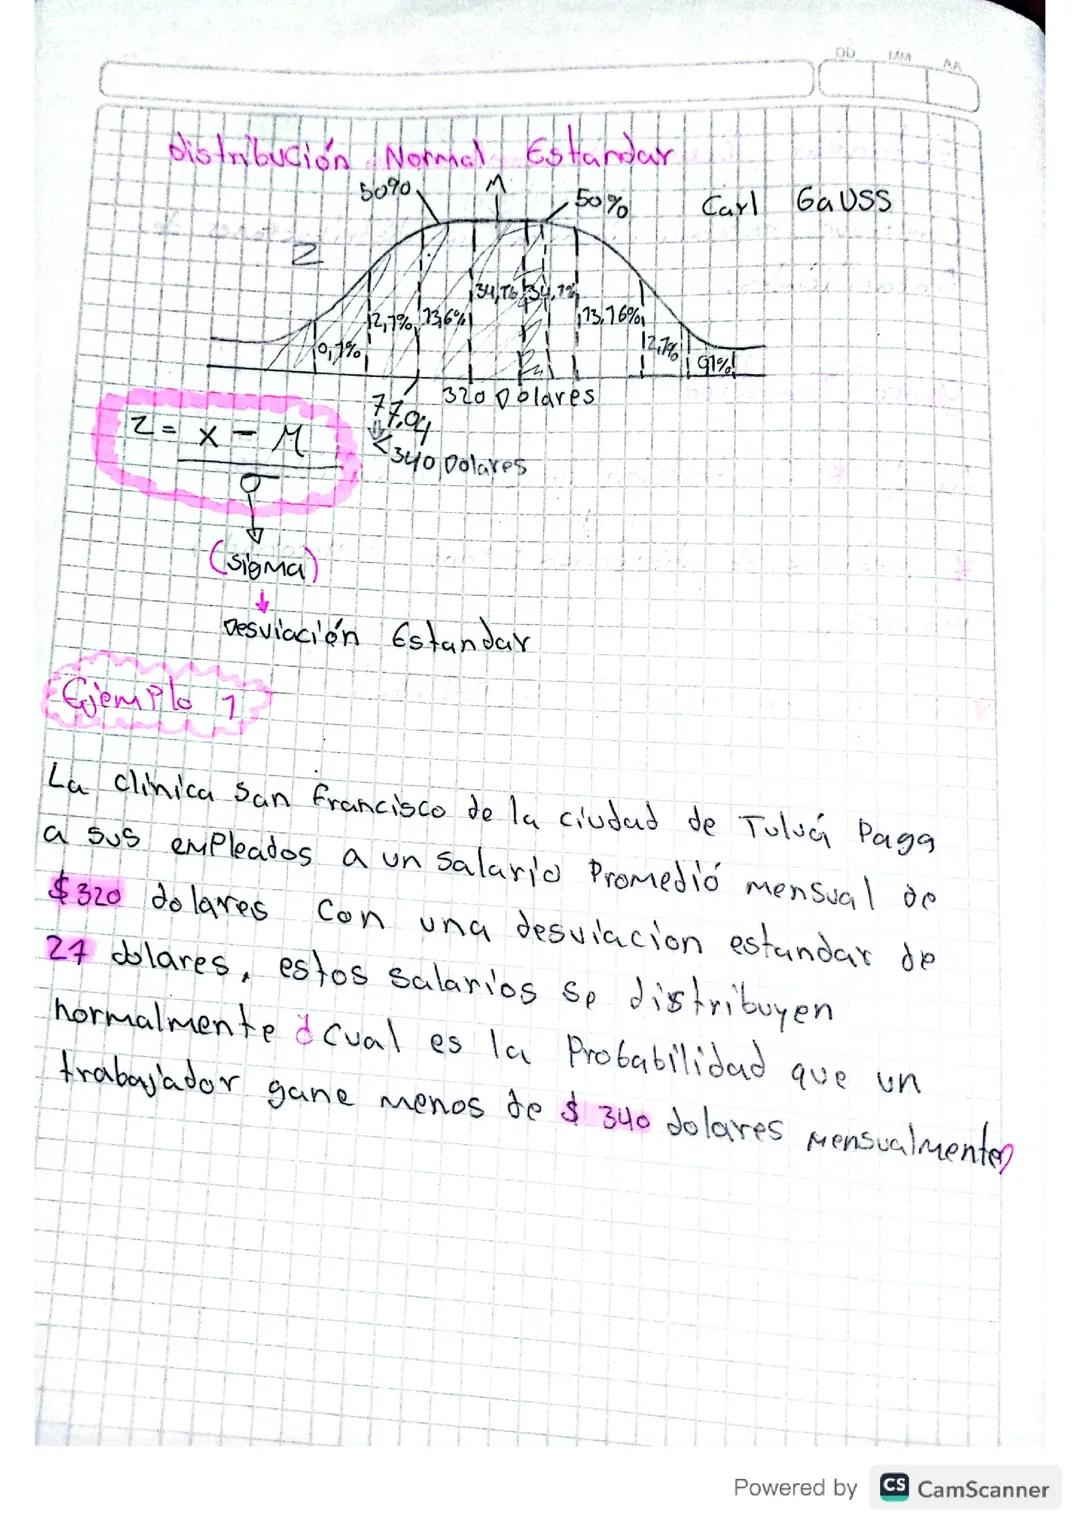 DD MM AA
distribución Normal Estandar
50% M 50% Carl GaUSS
Z
34,1% 34,1%
2,1% 13,6% 13,16%
0,1% 2,1% 91%
320 Dolares
77.04
<340 Dolares
Z = X - M
σ
(sigma)
Desviación Estandar
Ejemplo 1
La clinica San francisco de la ciudad de Tuluá Paga
a sus empleados a un salario Promedió mensual de
$320 dolares Con una desviacion estandar de
27 dolares, estos salarios se distribuyen
normalmente ¿Cual es la Probabilidad que un
trabajador gane menos de $ 340 dolares mensualmente?
Powered by CS CamScanner